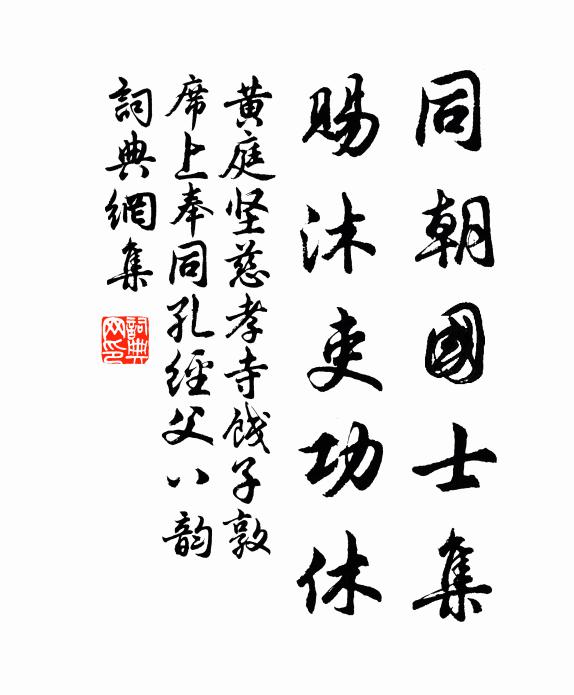 同朝國士集
賜沐吏功休
黄庭坚慈孝寺饯子敦
席上奉同孔經父八韵
詞典網集
詞典網印